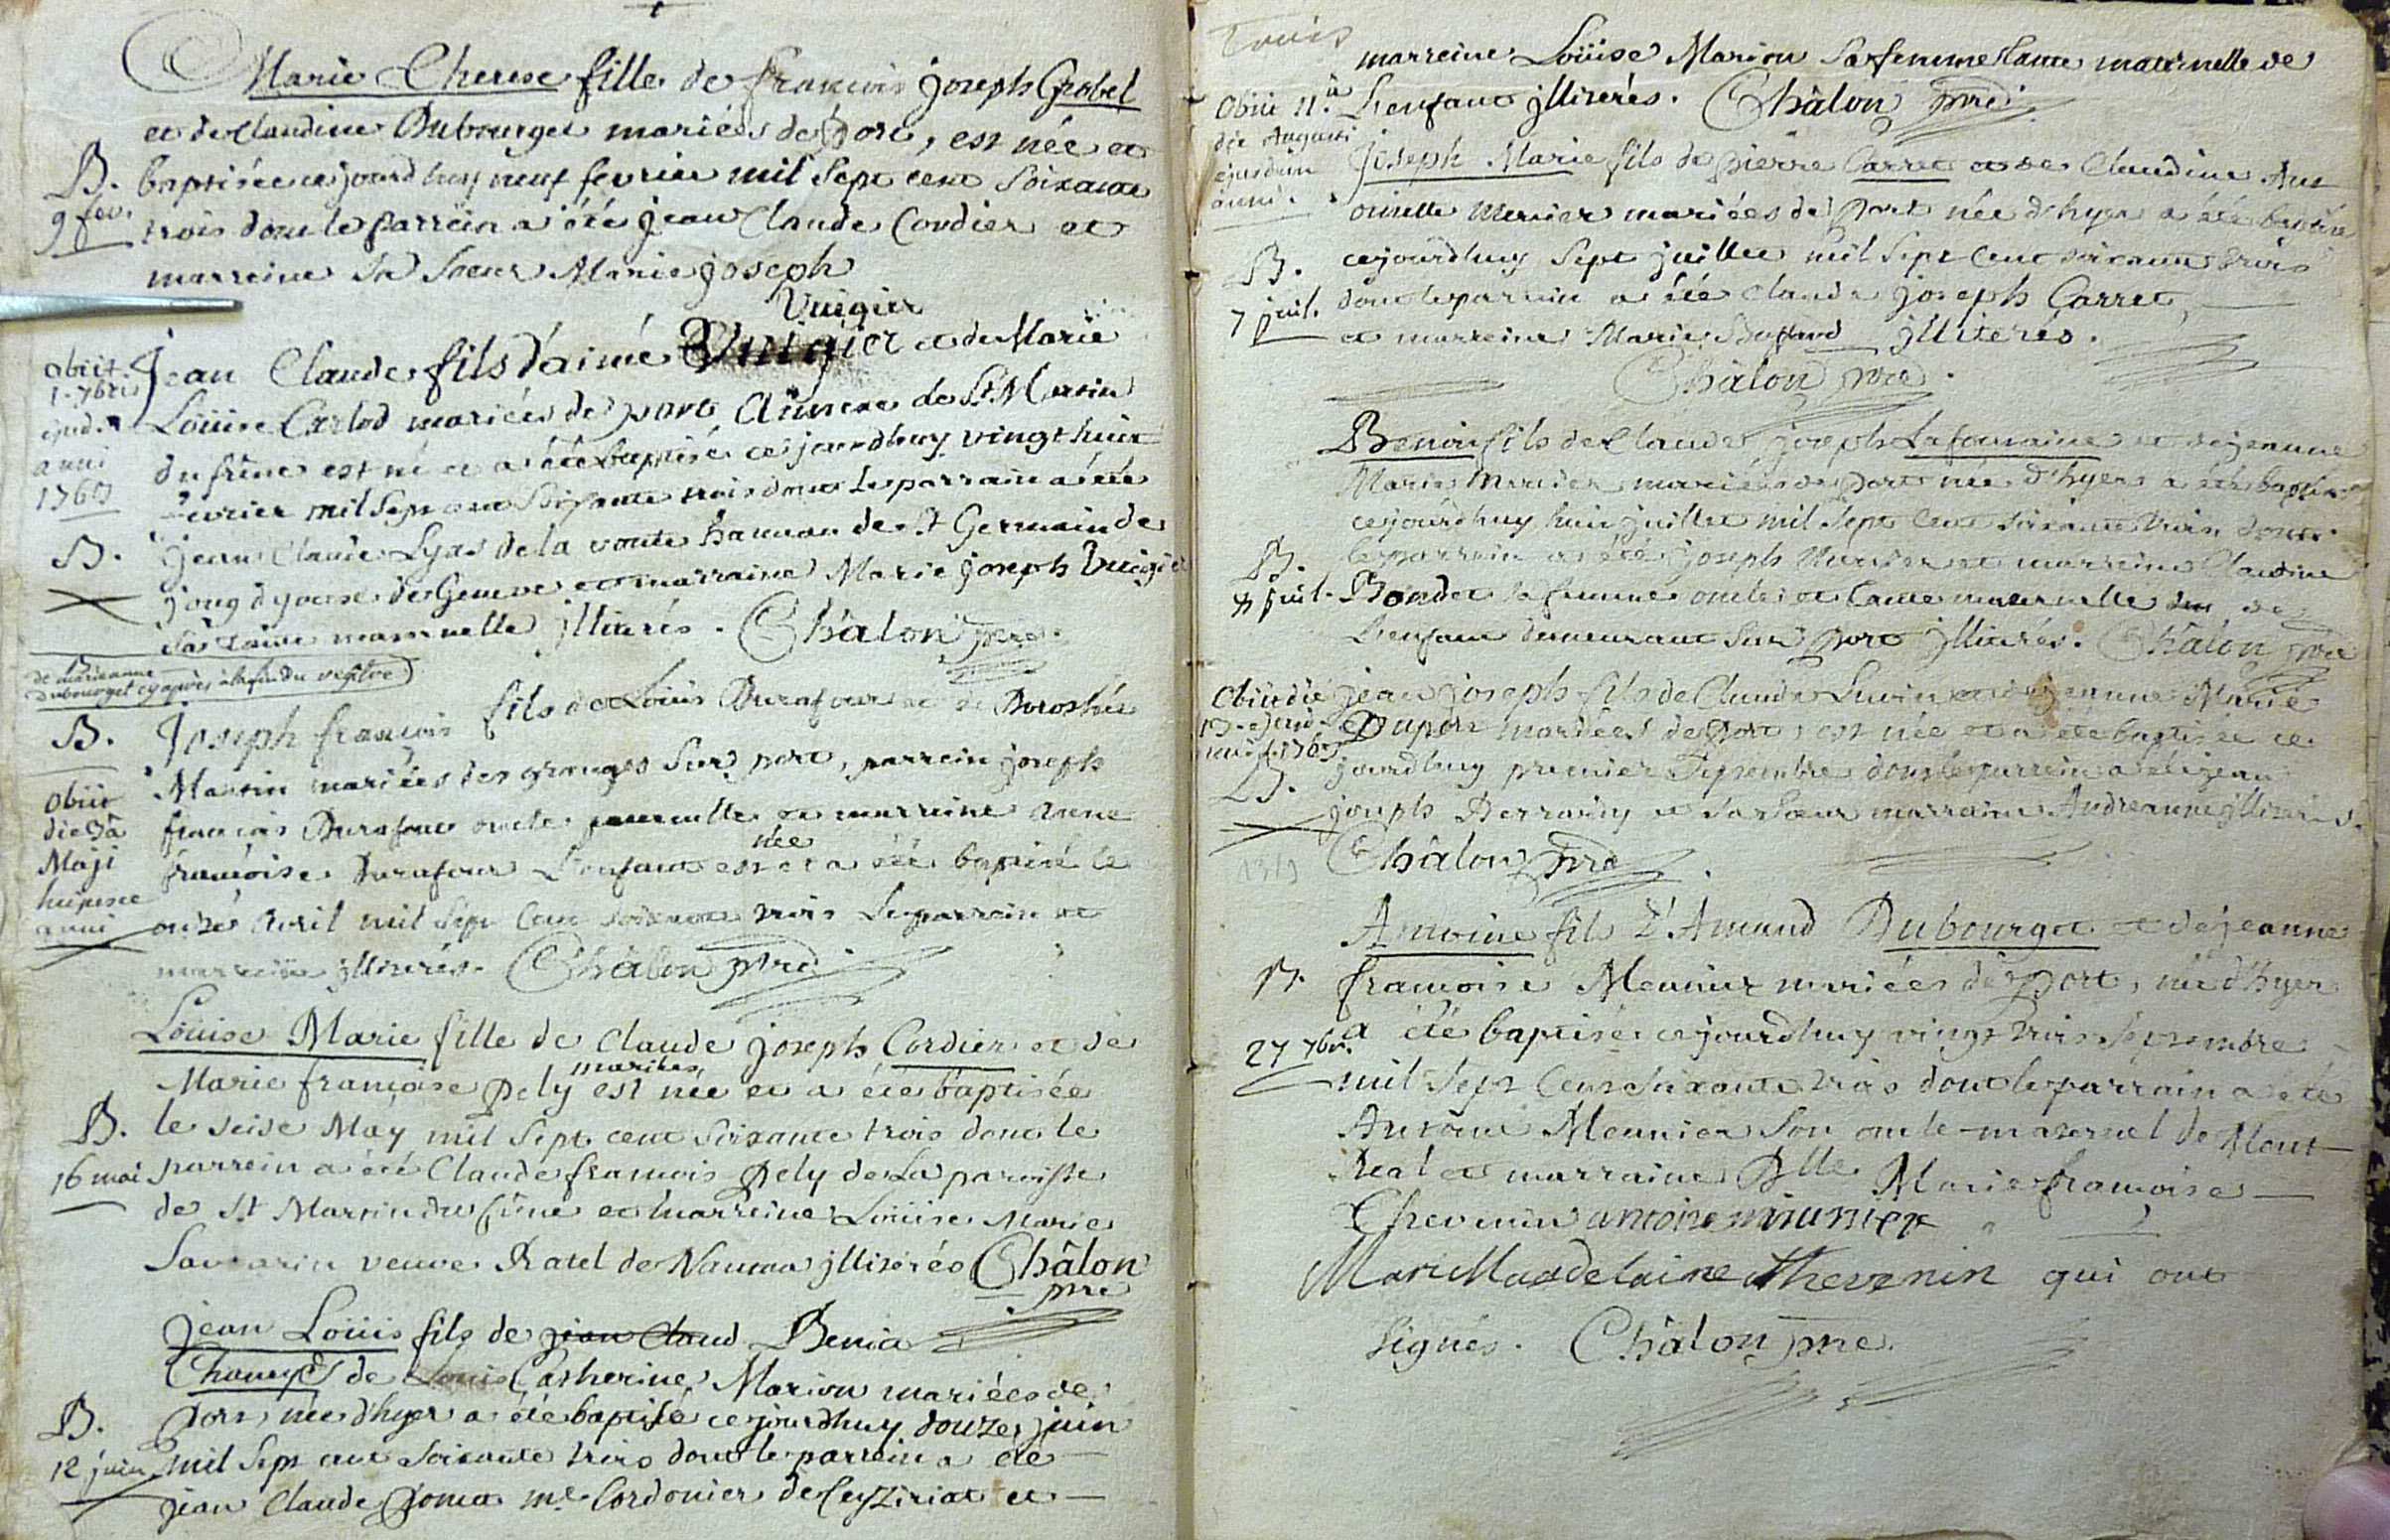 Marie Therese fille de francois joseph Grobel
et de Claudine Dubourget mariées de port, est née et
B. baptisée cejourdhuy neuf fevrier mil Sept cent Soixante
9 fev. trois dont le parrein a été jean Claude Cordier et
marreine sa Soeur Marie joseph
Vuigier
obiit
1. 7bris
ejusd.
anni
1763
Jean Claude fils d'aimé Vuigier et de Marie
Loüise Carlod mariées de port Annexe de St Martin
du frêne est né et a été baptisé cejourdhuy vingt huit
fevrier mil Sept cent Soixante trois dont le parrain a été
B. jean Claude Lyas de la voute hameau de St Germain de
joug dyocese de Geneve et marraine Marie joseph Vuigier
sa tante illiterés. Châlon pre.
de marieanne
Dubourget cy après à la fin du registre
B. Joseph francois fils de Loüis Durafour et de Dorothée
Martin mariées des granges Sur port, parrein joseph
obiit
die 3a
Maji
hujusce
anni
francois Durafour oncle paternelle et marreine anne
née
francoise Durafour L'enfant est et a été baptisé le
onze Avril mil Sept Cent soixante trois Le parrein et
marreine illiterés. Châlon pre.
Loüise Marie fille de Claude joseph Cordier et de
mariées
Marie francoise Pely est née et a été baptisée
B. le seise May mil Sept cent Soixante trois dont le
16 mai parrein a été Claude francois Pely de La paroisse
de St Martin du frêne et marreine Loüise Marie
Savarin veuve Ratel de Nantua illiterés Châlon
pre
Jean Loüis fils de jean Claud Benoit
de Catherine Marion mariées de
B. port, née d'hyer a été baptisé cejourdhuy douze juin
12 juin mil Sept cent Soixante trois dont le parrein a été
jean Claude me Cordonier de Ceyziriat et
Trois
marreine Loüise Marion Sa femme tante maternelle de
obiit 11.a
die Augusti
ejusdem
anni.
L'enfant illiterés. Châlon pre.
Joseph Marie fils de pierre Carret et de Claudine Ant
oinette Mercier mariées de Port née d'hyer a été baptisé
B. cejourdhuy Sept juillet mil Sept Cent soixante trois
7 juil. dont le parrein a été Claude joseph Carret,
et marreine Marie illiterés.
Châlon pre.
Benoit fils de Claude joseph Lafontaine et de jeanne
Marie Mercier mariées de port née d'hyer a été baptisé
cejourdhuy huit juillet mil Sept Cent soixante trois dont
B. le parrein a été joseph Mercier et marreine Claudine
8 juil. Bondet sa femme oncle et tante maternelle de
L'enfant demeurant Sur port illiterés. Châlon pre
obiit die
13. ejusd.
1763
jean joseph fils de Claude et de jeanne Marie
Dupon mariées de Port, est née et a été baptisée ce
B. jourdhuy premier Septembre dont le parrein a été jean
joseph et sa Soeur marraine Andreanne illiterés.
Châlon pre
Antoine fils d'Amand Dubourget et de jeanne
B. francoise Meunier mariées de port, née d'hyer
27 7bre. a été baptisé cejourdhuy vingt trois Septembre
mil Sept Cent soixante trois dont le parrain a été
Antoine Meunier Son oncle maternel de Mont
Real et marraine Dlle Marie francoise
Thevenin antoine miunier
Mari Maadelaine Thevenin qui ont
signés. Châlon pre.